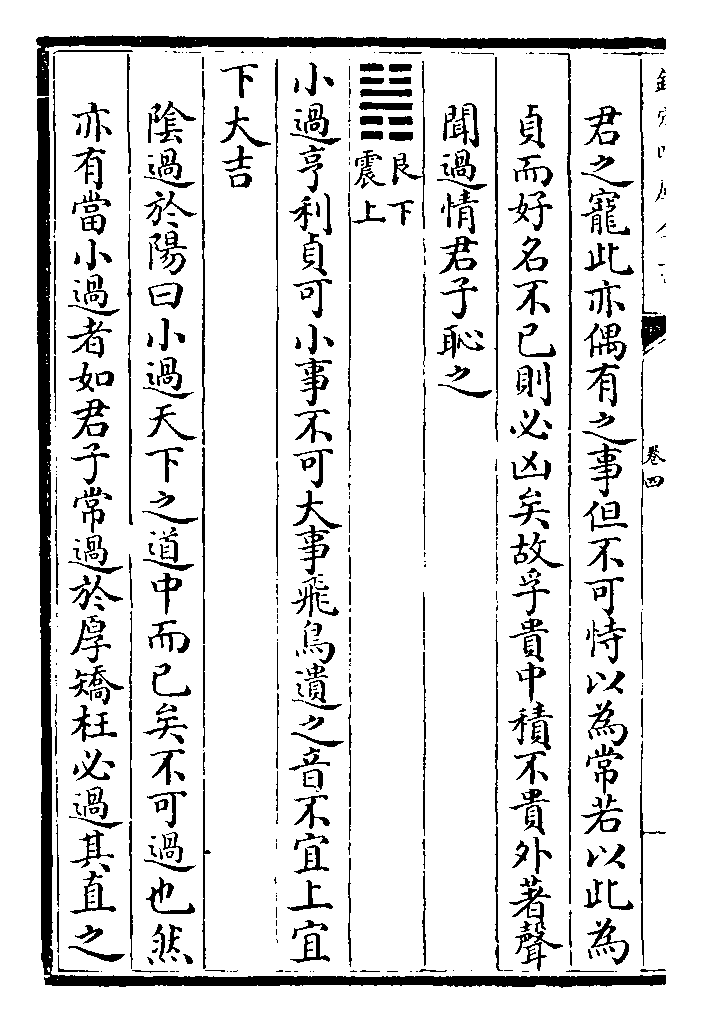 卷四
君之寵此亦偶有之事但不可恃以為常若以此為
貞而好名不已則必凶矣故孚貴中積不貴外著聲
聞過情君子恥之
艮下
震上
小過亨利貞可小事不可大事飛鳥遺之音不宜上宜
下大吉
陰過於陽曰小過天下之道中而已矣不可過也然
亦有當小過者如君子常過於厚矯枉必過其直之